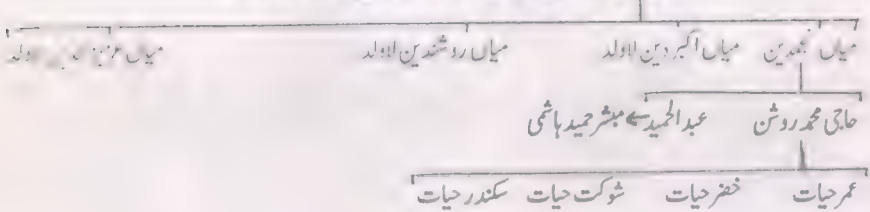 میاں نجمدین میاں اکبر دین لاولد میاں روشندین لاولد میاں عزیز لاولد
حاجی محمد روشن عبدالحمید ← مبشر حمید ہاشمی
عمر حیات خضر حیات شوکت حیات سکندر حیات